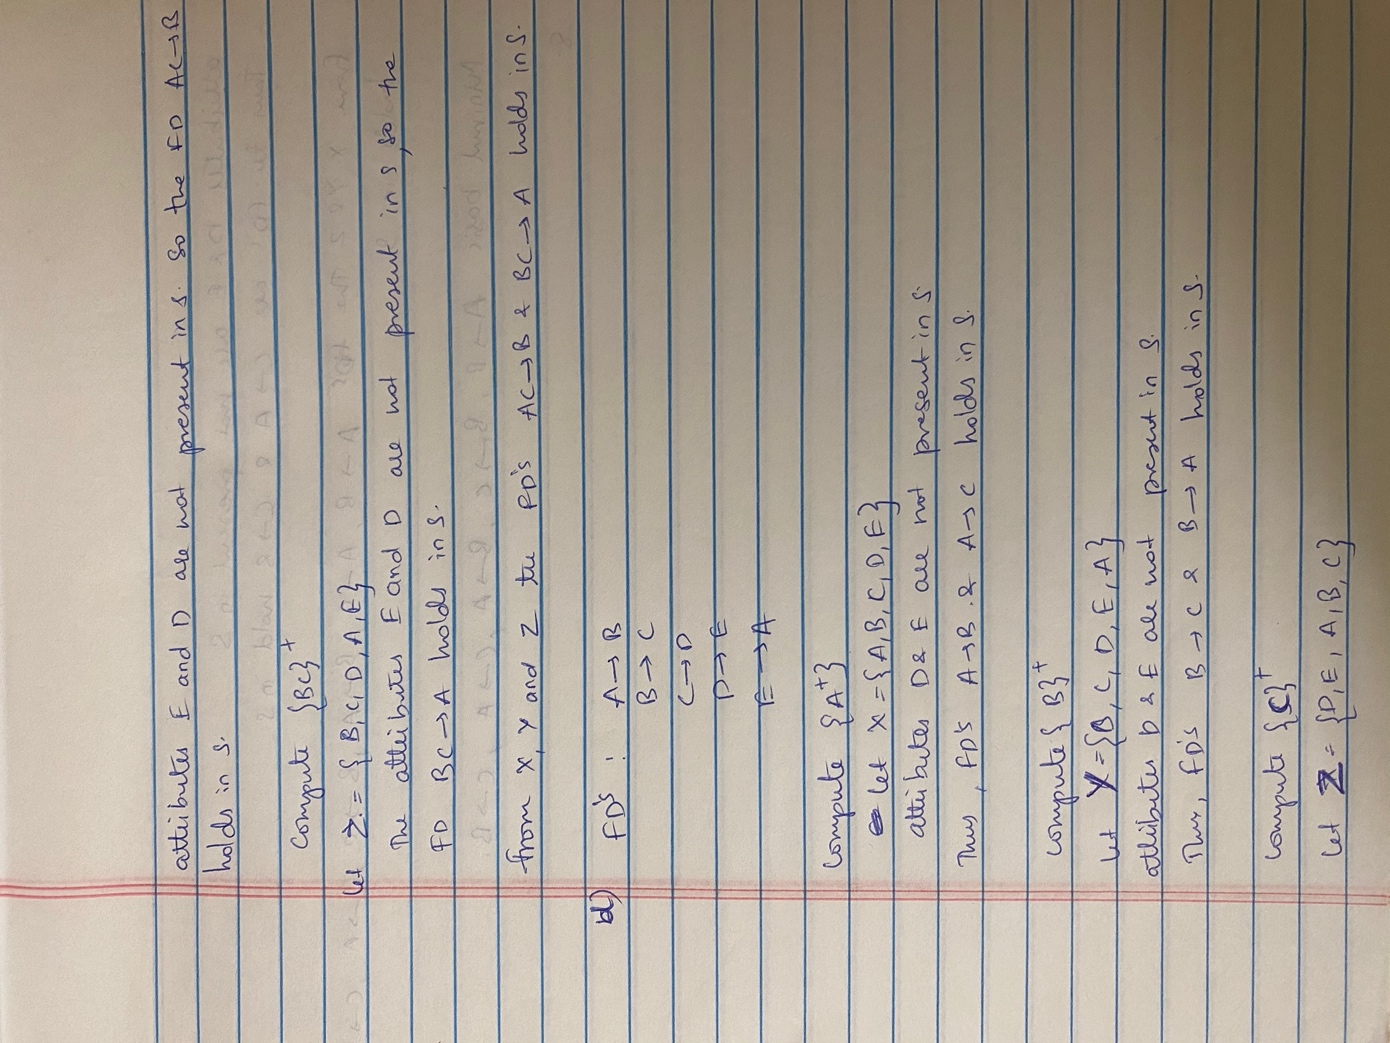 attributes E and D are not present in S. So the FD AC→B
holds in S.
Compute {BC}⁺
let Z = {B,C,D,A,E}
The attributes E and D are not present in S, so the
FD BC→A holds in S.
from X, Y and Z the FD's AC→B & BC→A holds in S.
d) FD's : A→B
B→C
C→D
D→E
E→A
Compute {A⁺}
let X={A,B,C,D,E}
attributes D & E are not present in S.
Thus, FD's A→B & A→C holds in S.
compute {B}⁺
let Y={B,C,D,E,A}
attributes D & E are not present in S.
Thus, FD's B→C & B→A holds in S.
Compute {C}⁺
let Z = {D,E,A,B,C}